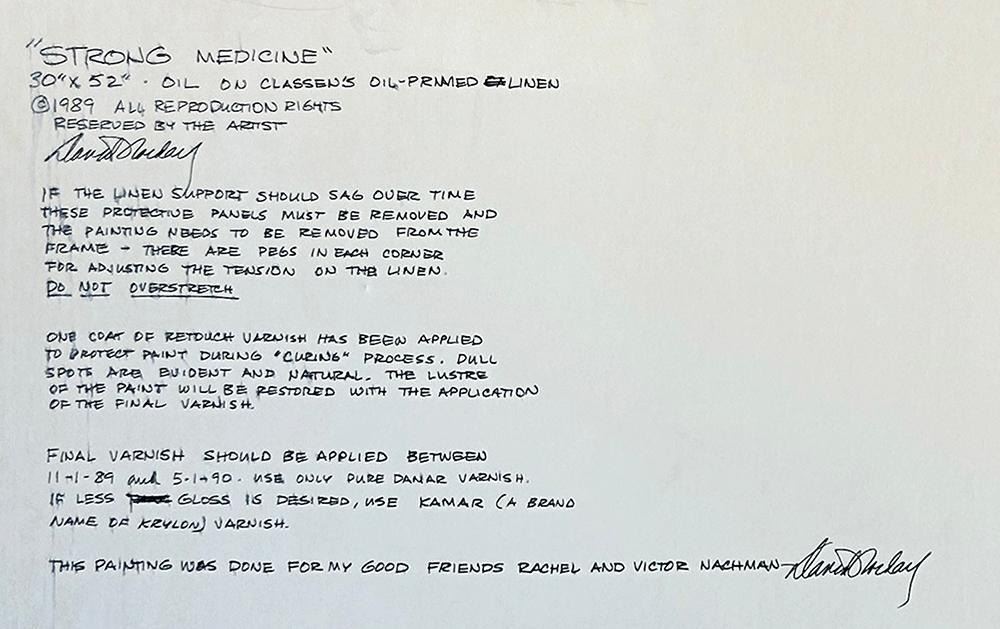 "STRONG MEDICINE"
30" X 52" · OIL ON CLASSEN'S OIL-PRIMED LINEN
©1989 ALL REPRODUCTION RIGHTS
RESERVED BY THE ARTIST
IF THE LINEN SUPPORT SHOULD SAG OVER TIME
THESE PROTECTIVE PANELS MUST BE REMOVED AND
THE PAINTING NEEDS TO BE REMOVED FROM THE
FRAME - THERE ARE PEGS IN EACH CORNER
FOR ADJUSTING THE TENSION ON THE LINEN.
DO NOT OVERSTRETCH
ONE COAT OF RETOUCH VARNISH HAS BEEN APPLIED
TO PROTECT PAINT DURING "CURING" PROCESS. DULL
SPOTS ARE EVIDENT AND NATURAL. THE LUSTRE
OF THE PAINT WILL BE RESTORED WITH THE APPLICATION
OF THE FINAL VARNISH.
FINAL VARNISH SHOULD BE APPLIED BETWEEN
11-1-89 and 5-1-90. USE ONLY PURE DAMAR VARNISH.
IF LESS GLOSS IS DESIRED, USE KAMAR (A BRAND
NAME OF KRYLON) VARNISH.
THIS PAINTING WAS DONE FOR MY GOOD FRIENDS RACHEL AND VICTOR NACHMAN - David